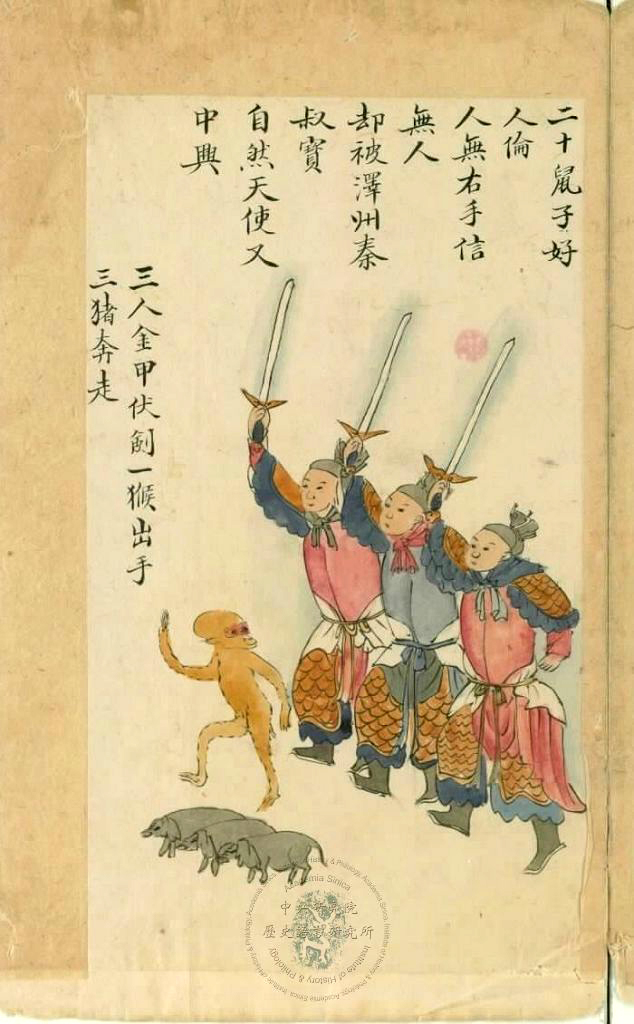 二十鼠子好
人倫
人無右手信
無人
却被澤州秦
叔寳
自然天使又
中興
三人金甲伏劍一猴出手
三猪奔走
中央研究院
歷史語言研究所
Academia Sinica
Institute of History & Philology